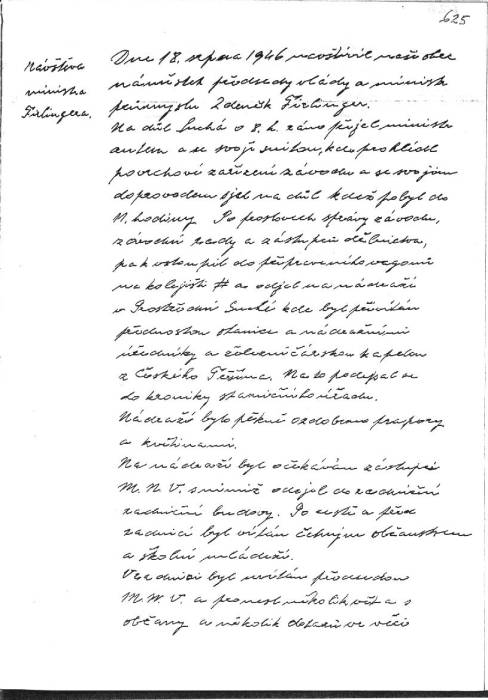 625
Návštěva
ministra
Firlingera.
Dne 18. srpna 1946 navštívil naši obec
náměstek předsedy vlády a ministr
průmyslu Zdeněk Firlinger.
Na důl Suchá o 8. h. ráno přijel ministr
autem a se svojí suitou, kde prohlédl
povrchové zařízení závodu a se svojím
doprovodem sjel na důl kdež pobyl do
11. hodiny. Po proslovech správy závodu,
závodní rady a zástupců dělnictva,
pak vstoupil do připraveného vagonu
na kolejišti # a odjel na nádraží
v Prostřední Suché kde byl přivítán
přednostou stanice a nádražními
úředníky a železničářskou kapelou
z Českého Těšína. Na to podepsal se
do kroniky staničního úřadu.
Nádraží bylo pěkně ozdobeno prapory
a květinami.
Na nádraží byl očekáván zástupci
M. N. V. s nimiž odejel do radniční
radniční budovy. Po cestě a před
radnicí byl vítán četným občanstvem
a školní mládeží.
V radnici byl uvítán předsedou
M. N. V. a pronesl několik vět a s
občany a několik dotazů ve věci